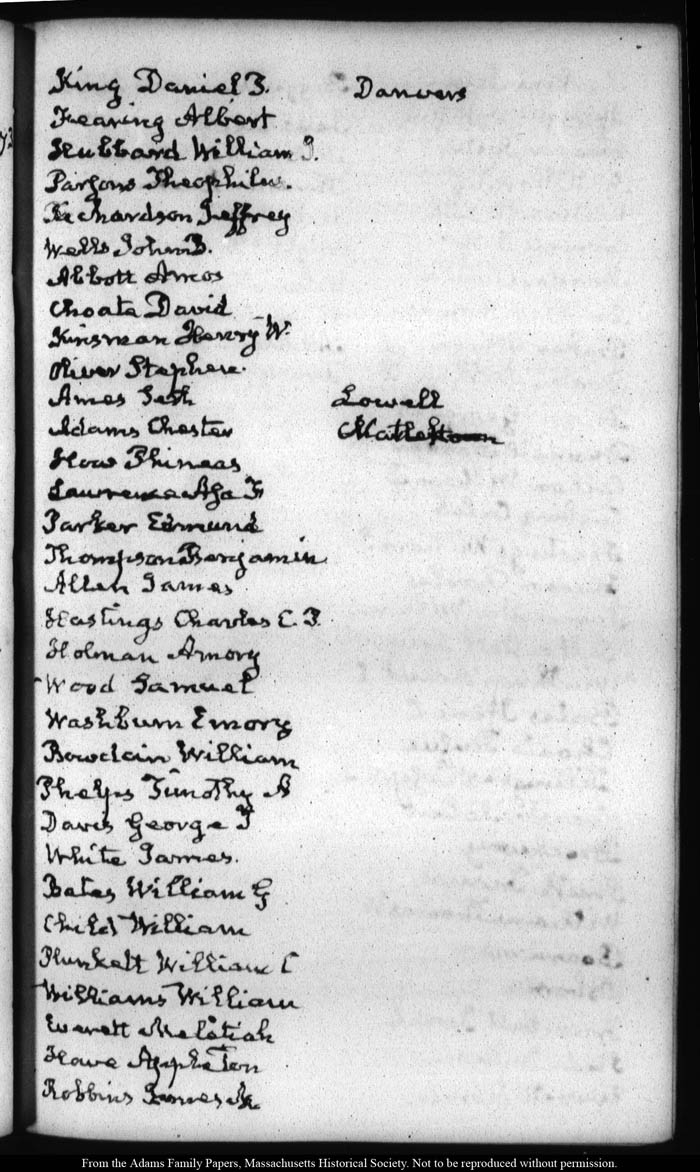 King Daniel P. Danvers
Fearing Albert
Hubbard William J.
Parsons Theophilus.
Richardson Jeffrey
Wells John B.
Abbott Amos
Choate David
Kinsman Henry W.
Oliver Stephen.
Ames Seth Lowell
Adams Chester
How Phineas
Lawrence Asa F
Parker Edmund
Thompson Benjamin
Allen James
Hastings Charles C. P.
Holman Amory
Wood Samuel
Washburn Emory
Bowdoin William
Phelps Timothy
Davis George T
White James.
Bates William G
Child William
Plunkett William C
Williams William
Everett Melatiah
Howe Appleton
Robbins James
From the Adams Family Papers, Massachusetts Historical Society. Not to be reproduced without permission.